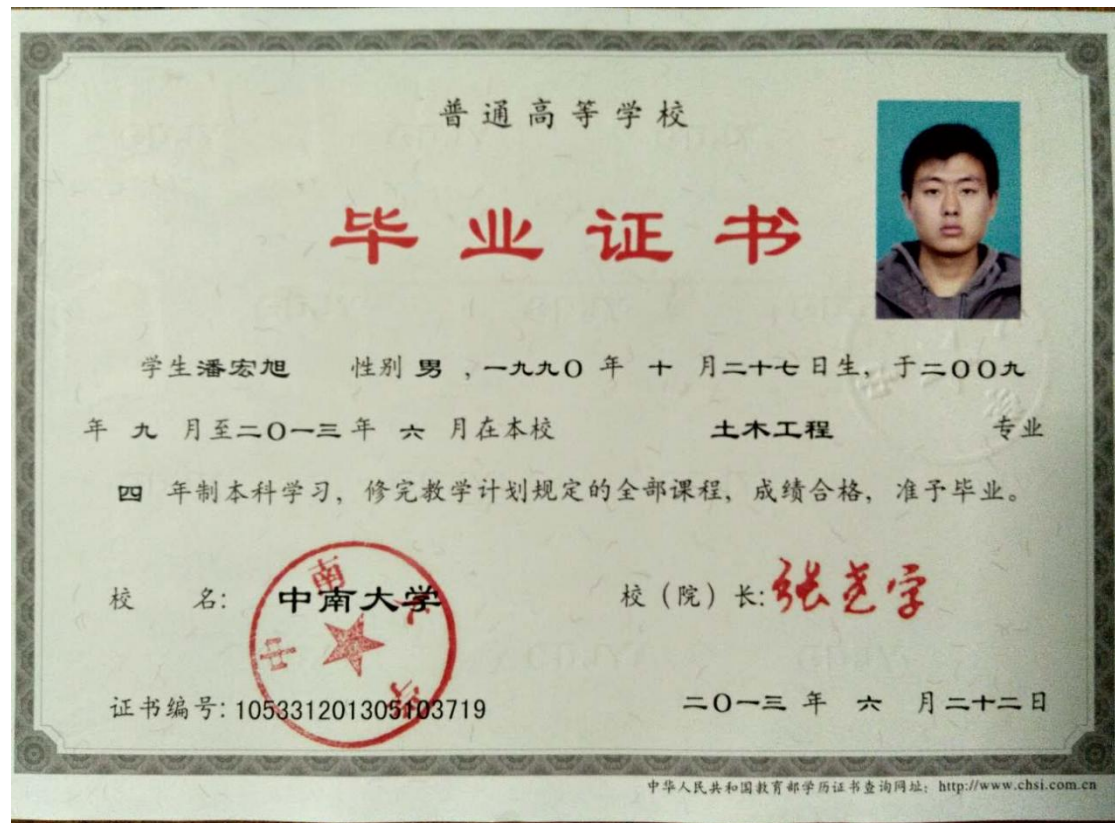 普通高等学校
毕业证书
学生潘宏旭 性别 男 ，一九九〇 年 十 月二十七日生，于二〇〇九
年 九 月至二〇一三年 六 月在本校 土木工程 专业
四 年制本科学习，修完教学计划规定的全部课程，成绩合格，准予毕业。
校 名：中南大学 校（院）长：张尧学
中南大学
证书编号：105331201305103719 二〇一三 年 六 月二十二日
中华人民共和国教育部学历证书查询网址：http://www.chsi.com.cn